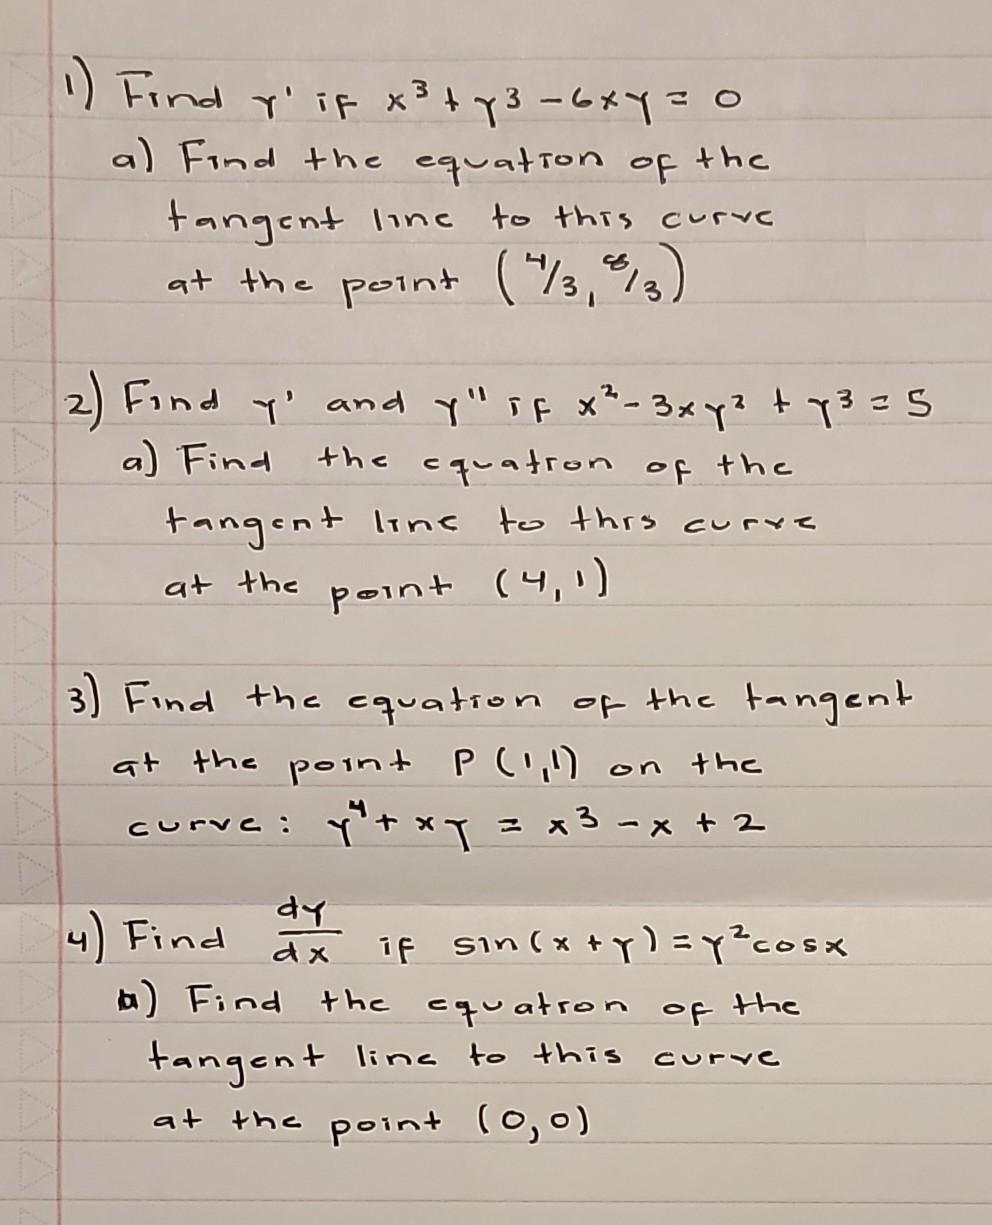 1) Find y' if x³ + y³ - 6xy = 0
a) Find the equation of the
tangent line to this curve
at the point (4/3, 8/3)
2) Find y' and y'' if x² - 3xy² + y³ = 5
a) Find the equation of the
tangent line to this curve
at the point (4,1)
3) Find the equation of the tangent
at the point P (1,1) on the
curve: y⁴ + xy = x³ - x + 2
4) Find dy/dx if sin(x+y) = y² cosx
a) Find the equation of the
tangent line to this curve
at the point (0,0)